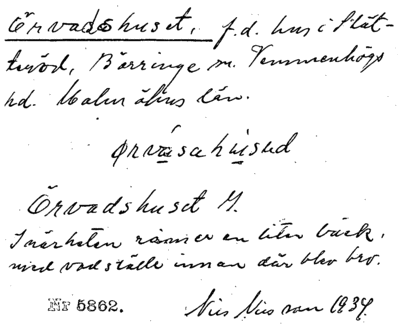 Örvadshuset, f.d. hus i Slät-
teröd, Börringe sn. Vemmenhögs
hd. Malmöhus län.
ørvásahúsəd
Örvadshuset
I närheten rinner en liten bäck,
med vadställe innan där blev bro.
Nr 5862. Nils Nilsson 1934.